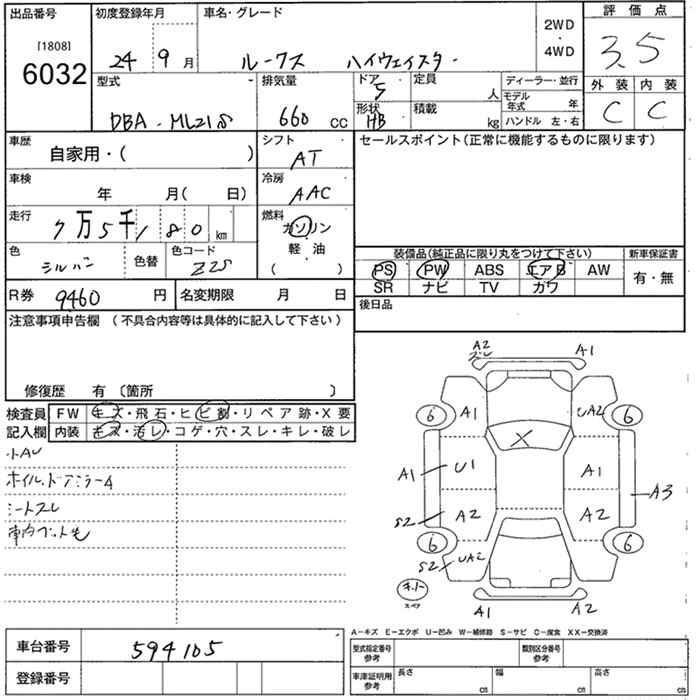 出品番号 初度登録年月 車名・グレード 2WD・4WD 評価点
[1808]
6032 24 9月 ルークス ハイウェイスター 3.5
型式 排気量 ドア 定員 ディーラー・並行 外装 内装
DBA-ML21S 660 CC 5 人 モデル年式 年 C C
形状 HB 積載 kg ハンドル 左・右
車歴 シフト セールスポイント(正常に機能するものに限ります)
自家用・( ) AT
車検 冷房
年 月( 日) AAC
走行 燃料
7万5千180 km ガソリン
軽・油
( )
色 色替 色コード
シルバー Z2S
装備品(純正品に限り丸をつけて下さい) 新車保証書
PS PW ABS エアB AW 有・無
SR ナビ TV カワ
R券 9460 円 名変期限 月 日
後日品
注意事項申告欄 (不具合内容等は具体的に記入して下さい)
修復歴 有 〔箇所 〕
検査員 FW キズ・飛石・ヒビ割・リペア跡・X要
記入欄 内装 キズ・汚レ・コゲ・穴・スレ・キレ・破レ
小AU
ホイル、ドアミラーA
シートスレ
A2
スレ
A1
6 A1 UA2 6
X
A1 U1 A1 A3
S2 A2 A2
6 S2 UA2 6
キー
スペア
A1 A2
A-キズ E-エクボ U-凹み W-補修跡 S-サビ C-腐食 XX-交換済
車台番号 594105
登録番号
型式指定番号 参考 類別区分番号 参考
車庫証明用 参考 長さ cm 幅 cm 高さ cm